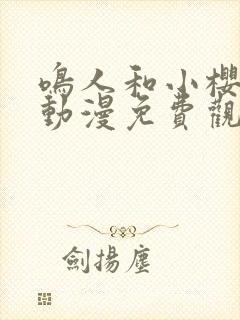 鳴人和小櫻
動漫免費觀
劍揚塵